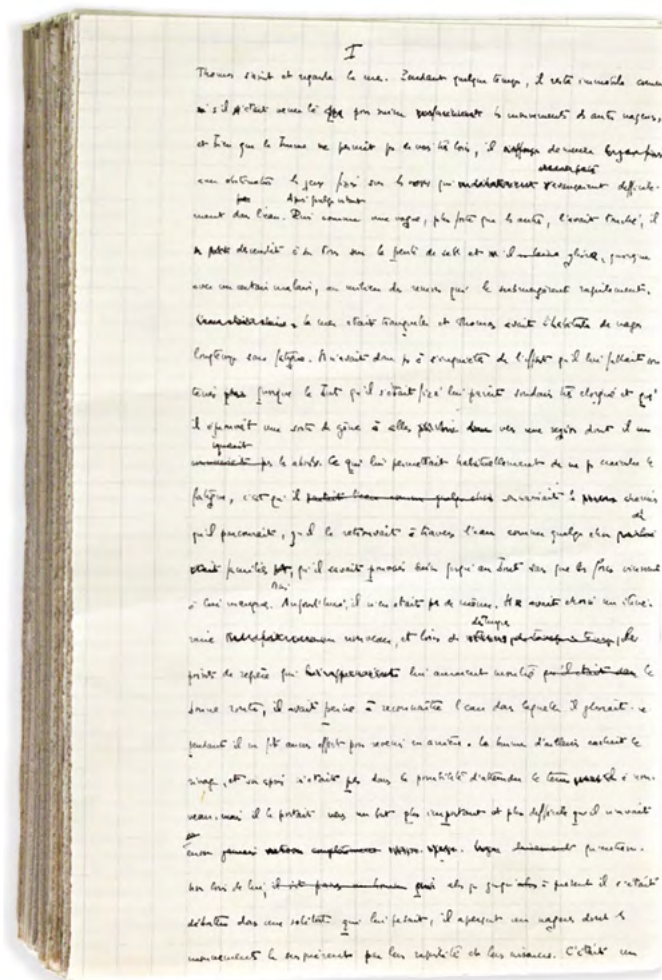 I
Thomas s'assit et regarda la mer. Pendant quelque temps, il resta immobile comme
s'il était venu là pour suivre les mouvements des autres nageurs,
et bien que la brume ne permît pas de voir très loin, il demeura
avec obstination les yeux fixés sur les qui difficile-
ment dans l'eau. Puis comme une vague, plus forte que les autres, l'avait touché, il
descendit à son tour sur la pente de sable et il glissa, quoique
avec un certain malaise, au milieu des remous qui le submergèrent rapidement.
la mer était tranquille et Thomas avait l'habitude de nager
longtemps sans fatigue. Il n'avait donc pas à s'inquiéter de l'effort qu'il lui fallait sou-
tenir quoique le but qu'il s'était fixé lui parût soudain très éloigné et qu'
il éprouvât une sorte de gêne à aller vers une région dont il
ignorait
les abords. Ce qui lui permettait habituellement de ne pas craindre la
fatigue, c'est qu'il connaissait le chemin
qu'il parcourait, qu'il le retrouvait à travers l'eau comme quelque chose
familier, qu'il savait pouvoir suivre jusqu'au bout sans que les forces vinssent
à lui manquer. Aujourd'hui, il n'en était pas de même. Il avait choisi un itiné-
raire nouveau, et loin de distinguer les
points de repère qui lui auraient montré la
bonne route, il avait peine à reconnaître l'eau dans laquelle il glissait. Ce-
pendant il ne fit aucun effort pour revenir en arrière. La brume d'ailleurs cachait le
rivage, et son espoir n'était pas dans la possibilité d'atteindre la terre à nou-
veau, mais il le portait vers un but plus important et plus difficile qu'il n'avait
encore jamais
non loin de lui, alors que jusqu'à présent il s'était
débattu dans une solitude qui lui pesait, il aperçut un nageur dont les
mouvements le surprirent par leur rapidité et leur aisance. C'était un